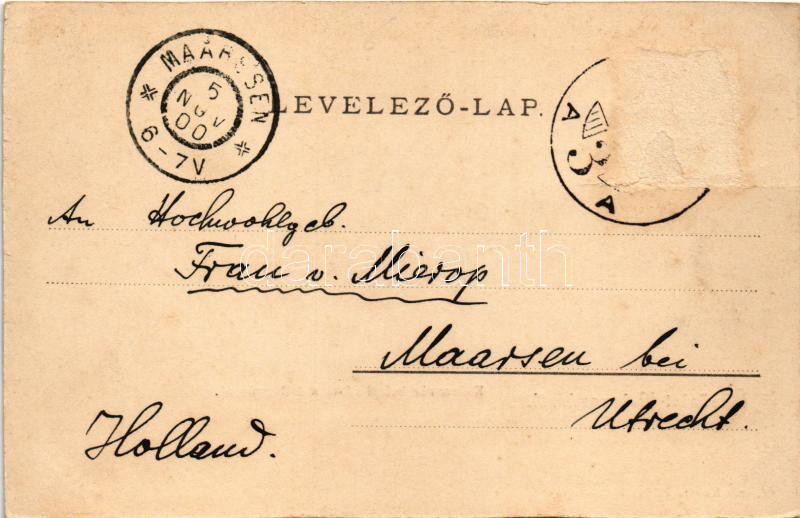 MAARSSEN
5
NOV
00
6-7V
LEVELEZŐ-LAP.
A 3 A
An Hochwohlgeb.
darabanth
Frau v. Mierop
Maarsen bei
Utrecht.
Holland.